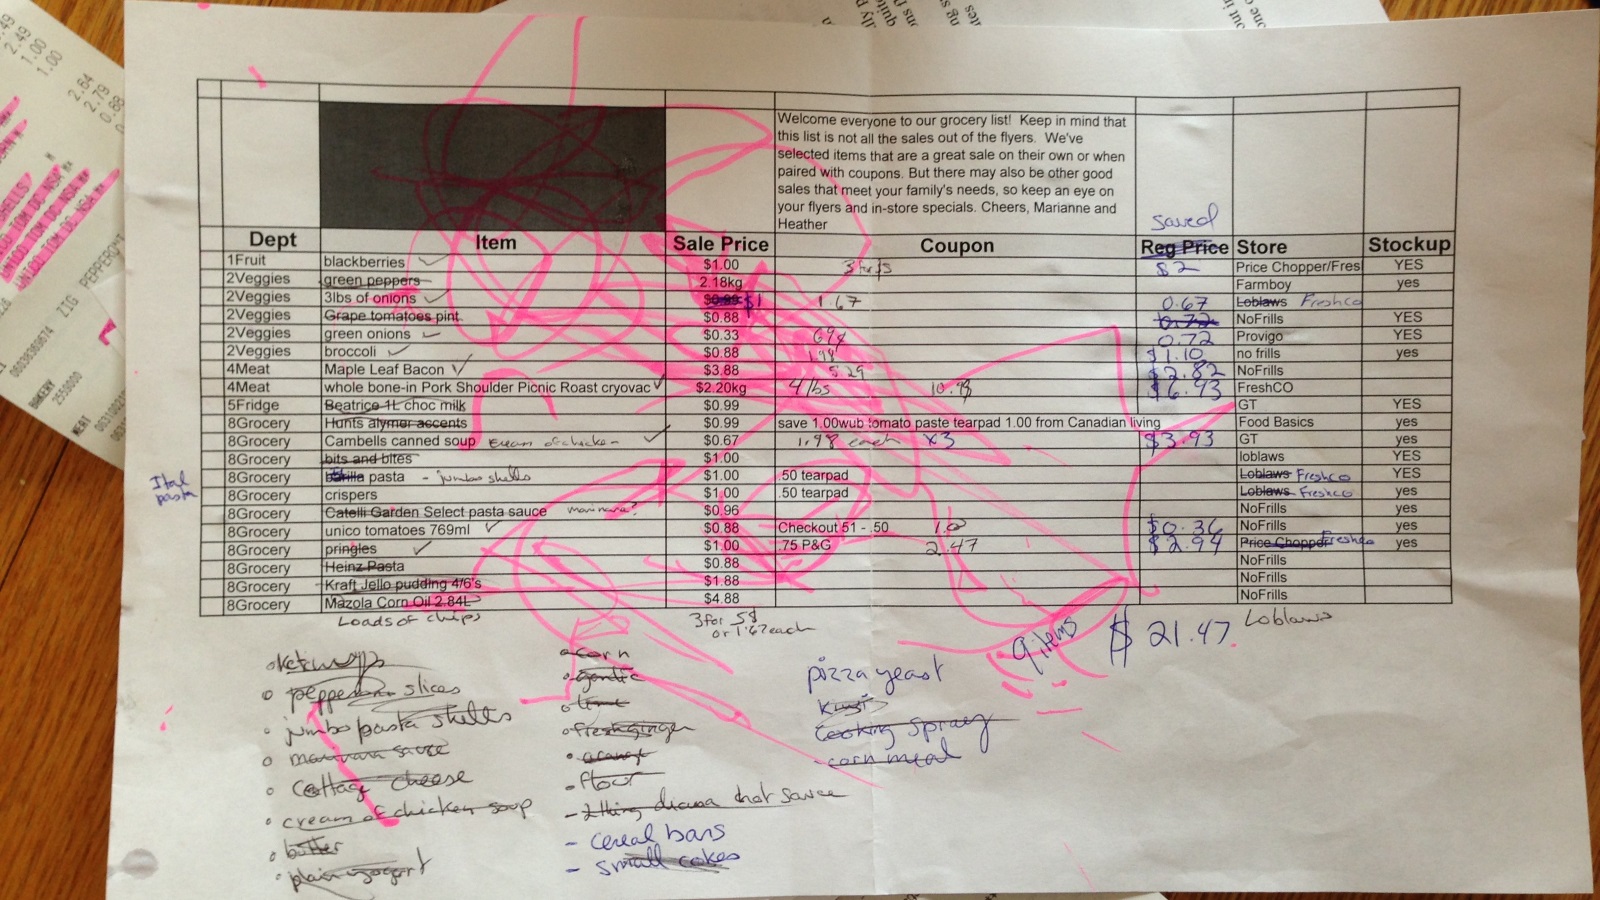 Welcome everyone to our grocery list! Keep in mind that
this list is not all the sales out of the flyers. We've
selected items that are a great sale on their own or when
paired with coupons. But there may also be other good
sales that meet your family's needs, so keep an eye on
your flyers and in-store specials. Cheers, Marianne and
Heather
saved
Dept Item Sale Price Coupon Reg Price Store Stockup
1Fruit blackberries $1.00 3 for 5 $2 Price Chopper/Fres YES
2Veggies green peppers 2.18kg Farmboy yes
2Veggies 3lbs of onions $0.88 $1 1.67 0.67 Loblaws Freshco
2Veggies Grape tomatoes pint $0.88 0.72 NoFrills YES
2Veggies green onions $0.33 69¢ 0.72 Provigo YES
2Veggies broccoli $0.88 1.98 $1.10 no frills yes
4Meat Maple Leaf Bacon $3.88 5.29 $2.82 NoFrills
4Meat whole bone-in Pork Shoulder Picnic Roast cryovac $2.20kg 4 lbs 10.98 $6.93 FreshCO
5Fridge Beatrice 1L choc milk $0.99 GT YES
8Grocery Hunts alymer accents $0.99 save 1.00wub tomato paste tearpad 1.00 from Canadian living Food Basics yes
8Grocery Cambells canned soup cream of chicken $0.67 1.98 each x3 $3.93 GT yes
8Grocery bits and bites $1.00 loblaws YES
Ital pasta
8Grocery barilla pasta - jumbo shells $1.00 .50 tearpad Loblaws Freshco YES
8Grocery crispers $1.00 .50 tearpad Loblaws Freshco yes
8Grocery Catelli Garden Select pasta sauce marinara? $0.96 NoFrills yes
8Grocery unico tomatoes 769ml $0.88 Checkout 51 - .50 $0.36 NoFrills yes
8Grocery pringles $1.00 .75 P&G 2.47 $2.94 Price Chopper Freshco yes
8Grocery Heinz Pasta $0.88 NoFrills
8Grocery Kraft Jello pudding 4/6's $1.88 NoFrills
8Grocery Mazola Corn Oil 2.84L $4.88 NoFrills
Loads of chips 3 for 5$ Loblaws
or 1.67 each
9 items $21.47
ketchup
pepperoni slices
jumbo pasta shells
marinara sauce
cottage cheese
cream of chicken soup
butter
plain yogurt
corn
garlic
lime
fresh ginger
flour
- diana hot sauce
- cereal bars
- small cakes
pizza yeast
cooking spray
- corn meal